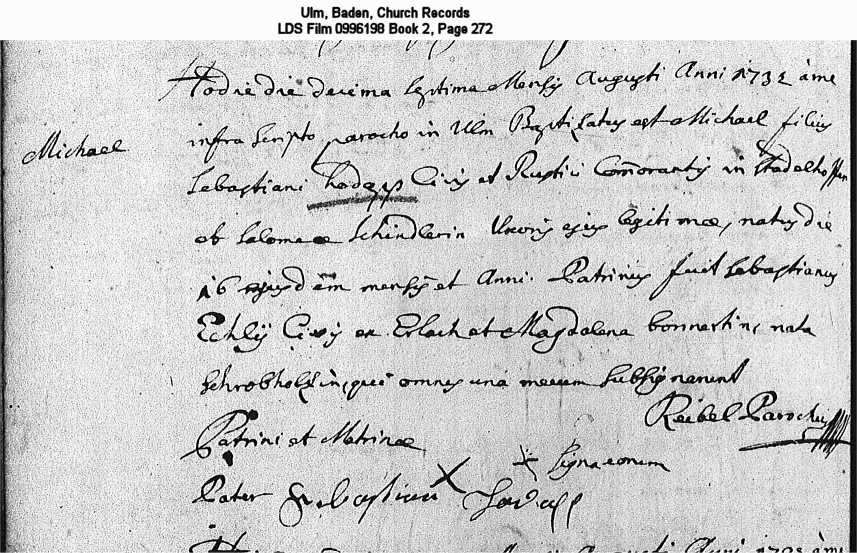 Ulm, Baden, Church Records
LDS Film 0996198 Book 2, Page 272
Hodie die decima septima Mensis Augusti Anni 1732 à me
Michael
infra scripto parocho in Ulm Baptisatus est Michael filius
Sebastiani Civis et Rustici Com̄orantis in Stadelhoffen
et Salomeae Schindlerin Uxoris ejus legitimae, natus die
16 ejusdem mensis et Anni. Patrinus fuit Sebastianus
Civis ex Erlach et Magdalena nata
qui omnes una mecum subsignarunt
Reibel Parochus
Patrini et Matrinae
X Signa eorum
Pater Sebastian X
Augusti Anni à me